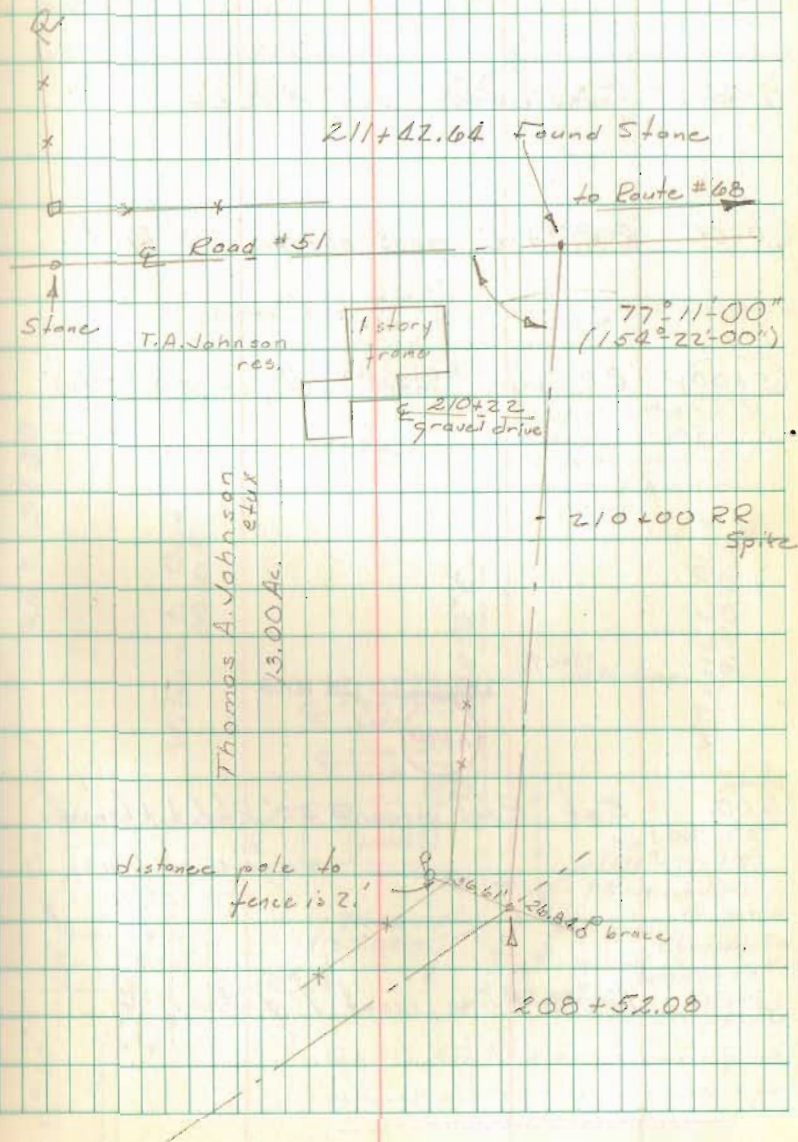 211+42.64 Found Stone
to Route #68
℄ Road #51
Stone
T.A. Johnson
res.
1 story
frame
77°-11'-00"
(154°-22'-00")
℄ 210+22
gravel drive
210+00 RR
Spike
Thomas A. Johnson
etux
13.00 Ac.
distance pole to
fence is 2.'
36.61'
brace
208+52.08